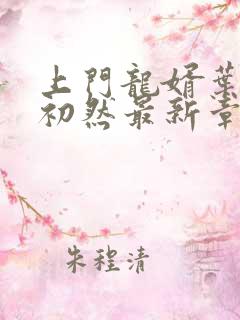 上門龍婿葉
初然最新章
朱程清